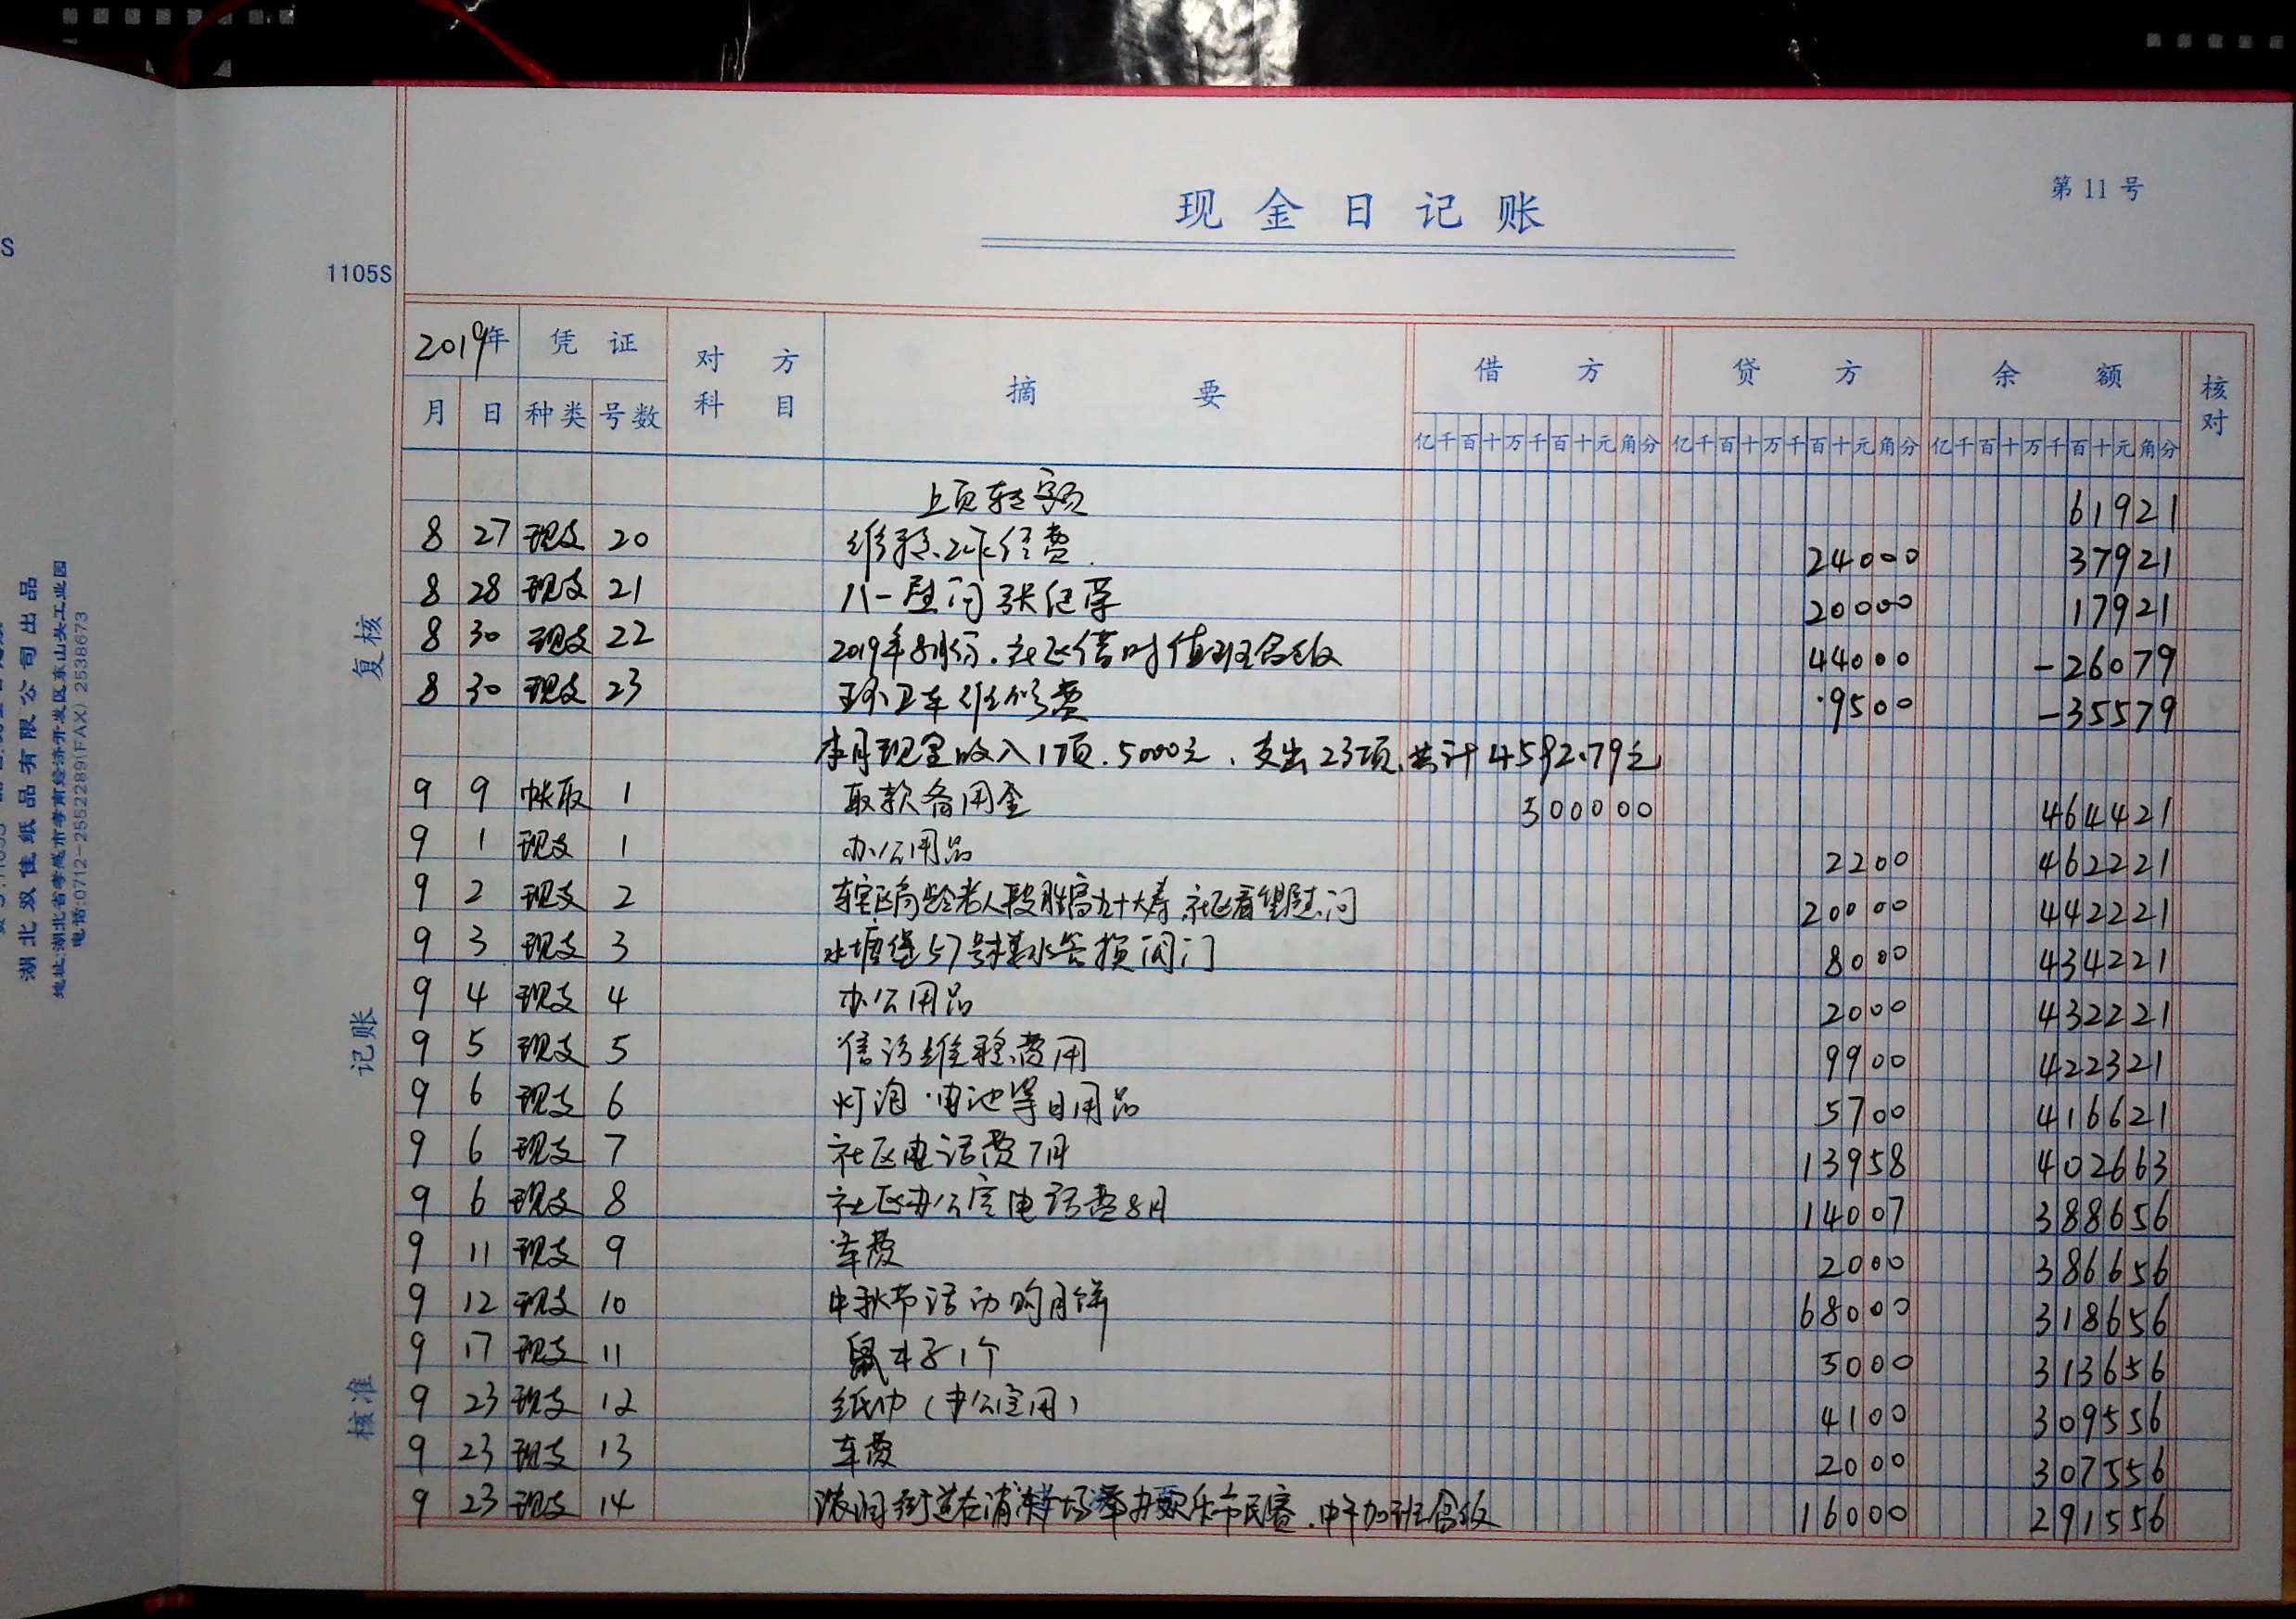 现金日记账
第 11 号
1105S
2019年 凭证 对方科目 摘要 借方 贷方 余额 核对
月 日 种类 号数 亿千百十万千百十元角分 亿千百十万千百十元角分 亿千百十万千百十元角分
上页转 61921
8 27 现支 20 维稳工作经费 24000 37921
8 28 现支 21 八一慰问张 20000 17921
8 30 现支 22 2019年8月份.社区借时值班合饭 44000 -26079
8 30 现支 23 环卫车维修费 9500 -35579
本月现金收入1项.5000元、支出23项.共计4592.79元
9 9 帐取 1 取款备用金 500000 464421
9 1 现支 1 办公用品 2200 462221
9 2 现支 2 辖区高龄老人 九十大寿.社区看望慰问 20000 442221
9 3 现支 3 水塘堡57号楼水管换阀门 8000 434221
9 4 现支 4 办公用品 2000 432221
9 5 现支 5 信访维稳费用 9900 422321
9 6 现支 6 灯泡.电池等日用品 5700 416621
9 6 现支 7 社区电话费7月 13958 402663
9 6 现支 8 社区办公室电话费8月 14007 388656
9 11 现支 9 车费 2000 386656
9 12 现支 10 中秋节活动购月饼 68000 318656
9 17 现支 11 1个 5000 313656
9 23 现支 12 纸巾(办公室用) 4100 309556
9 23 现支 13 车费 2000 307556
9 23 现支 14 街道在 举办欢乐市民赛.中午加班合饭 16000 291556
复核
记账
核准
湖北双佳纸品有限公司出品
地址:湖北省孝感市孝南经济开发区东山头工业园
电话:0712-2552289(FAX) 2538673